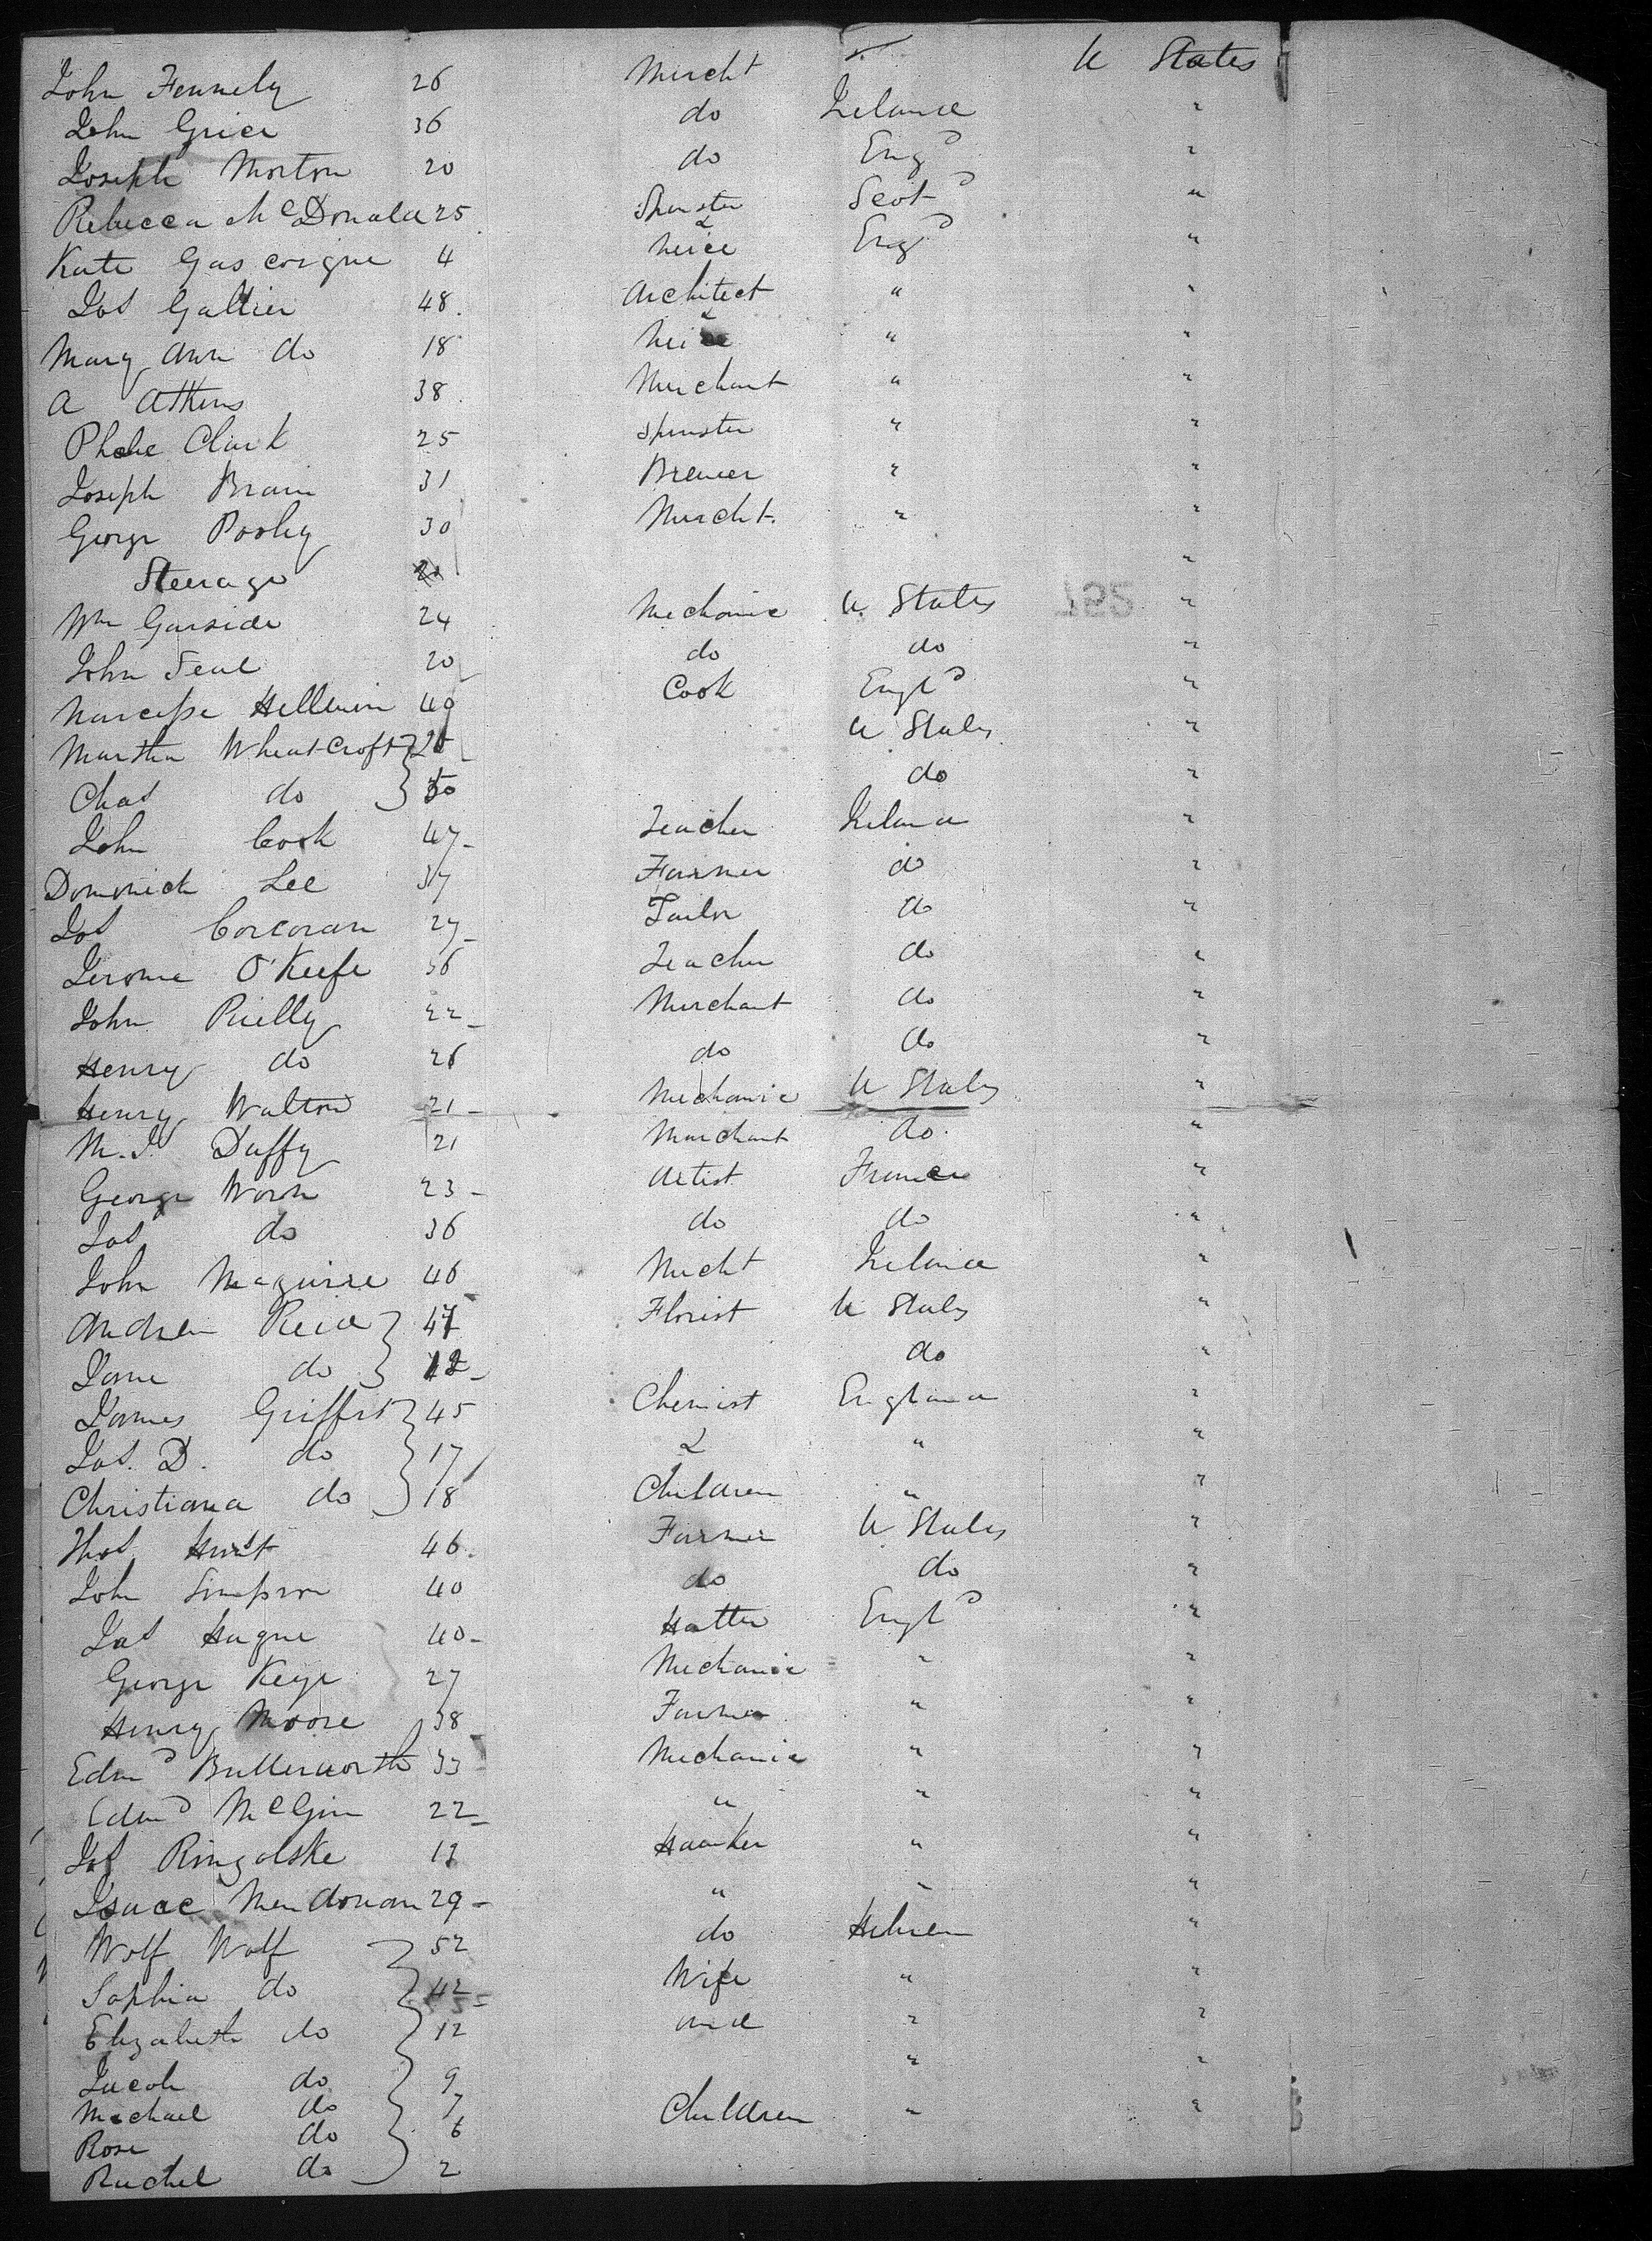 John Fennely 26 Mercht " U States
John Grier 36 do Ireland "
Joseph Morton 20 do Engd "
Rebecca McDonald 25 Spinster Scotd "
Kate Gascoigne 4 & neice Engd "
Jas Gallier 48 Architect " "
Mary Ann do 18 & neice " "
A Atkins 38 Merchant " "
Phebe Clark 25 Spinster " "
Joseph Brain 31 Brewer " "
George Pooley 30 Mercht. " "
Steerage "
Wm Garside 24 Mechanic U States "
John Seal 20 do do "
Narcisse Hellewin 40 Cook Engld "
Martha Wheatcroft U States "
Chas do do "
John Cook 47 Teacher Ireland "
Domonick Lee 37 Farmer do "
Jas Corcoran 27 Tailor do "
Jerome O'Keefe 36 Teacher do "
John Reilly 22 Merchant do "
Henry do 26 do do "
Henry Walton 21 Mechanic U States "
M. J. Duffy 21 Merchant do "
George Worn 23 Artist France "
Jas do 36 do do "
John Maguire 46 Mercht Ireland "
Andrew Reid 47 Florist U States "
Jane do 12 do "
James Griffit 45 Chemist England "
Jas. D. do 17 & " "
Christiana do 18 Children " "
Thos Hurst 46 Farmer U States "
John Simpson 40 do do "
Jas Hague 40 Hatter Engld "
George Keye 27 Mechanic " "
Henry Moore 38 Farmer " "
Edmd Butterworth 33 Mechanic " "
Edmd McGinn 22 " " "
Jas Ringolske Hawker " "
Isaac Mendonan 29 " " "
Wolf Wolf 52 do Hebrew "
Sophia do 42 Wife " "
Elizabeth do 12 and " "
Jacob do 9 " "
Michael do 7 Children " "
Rose do 6
Rachel do 2